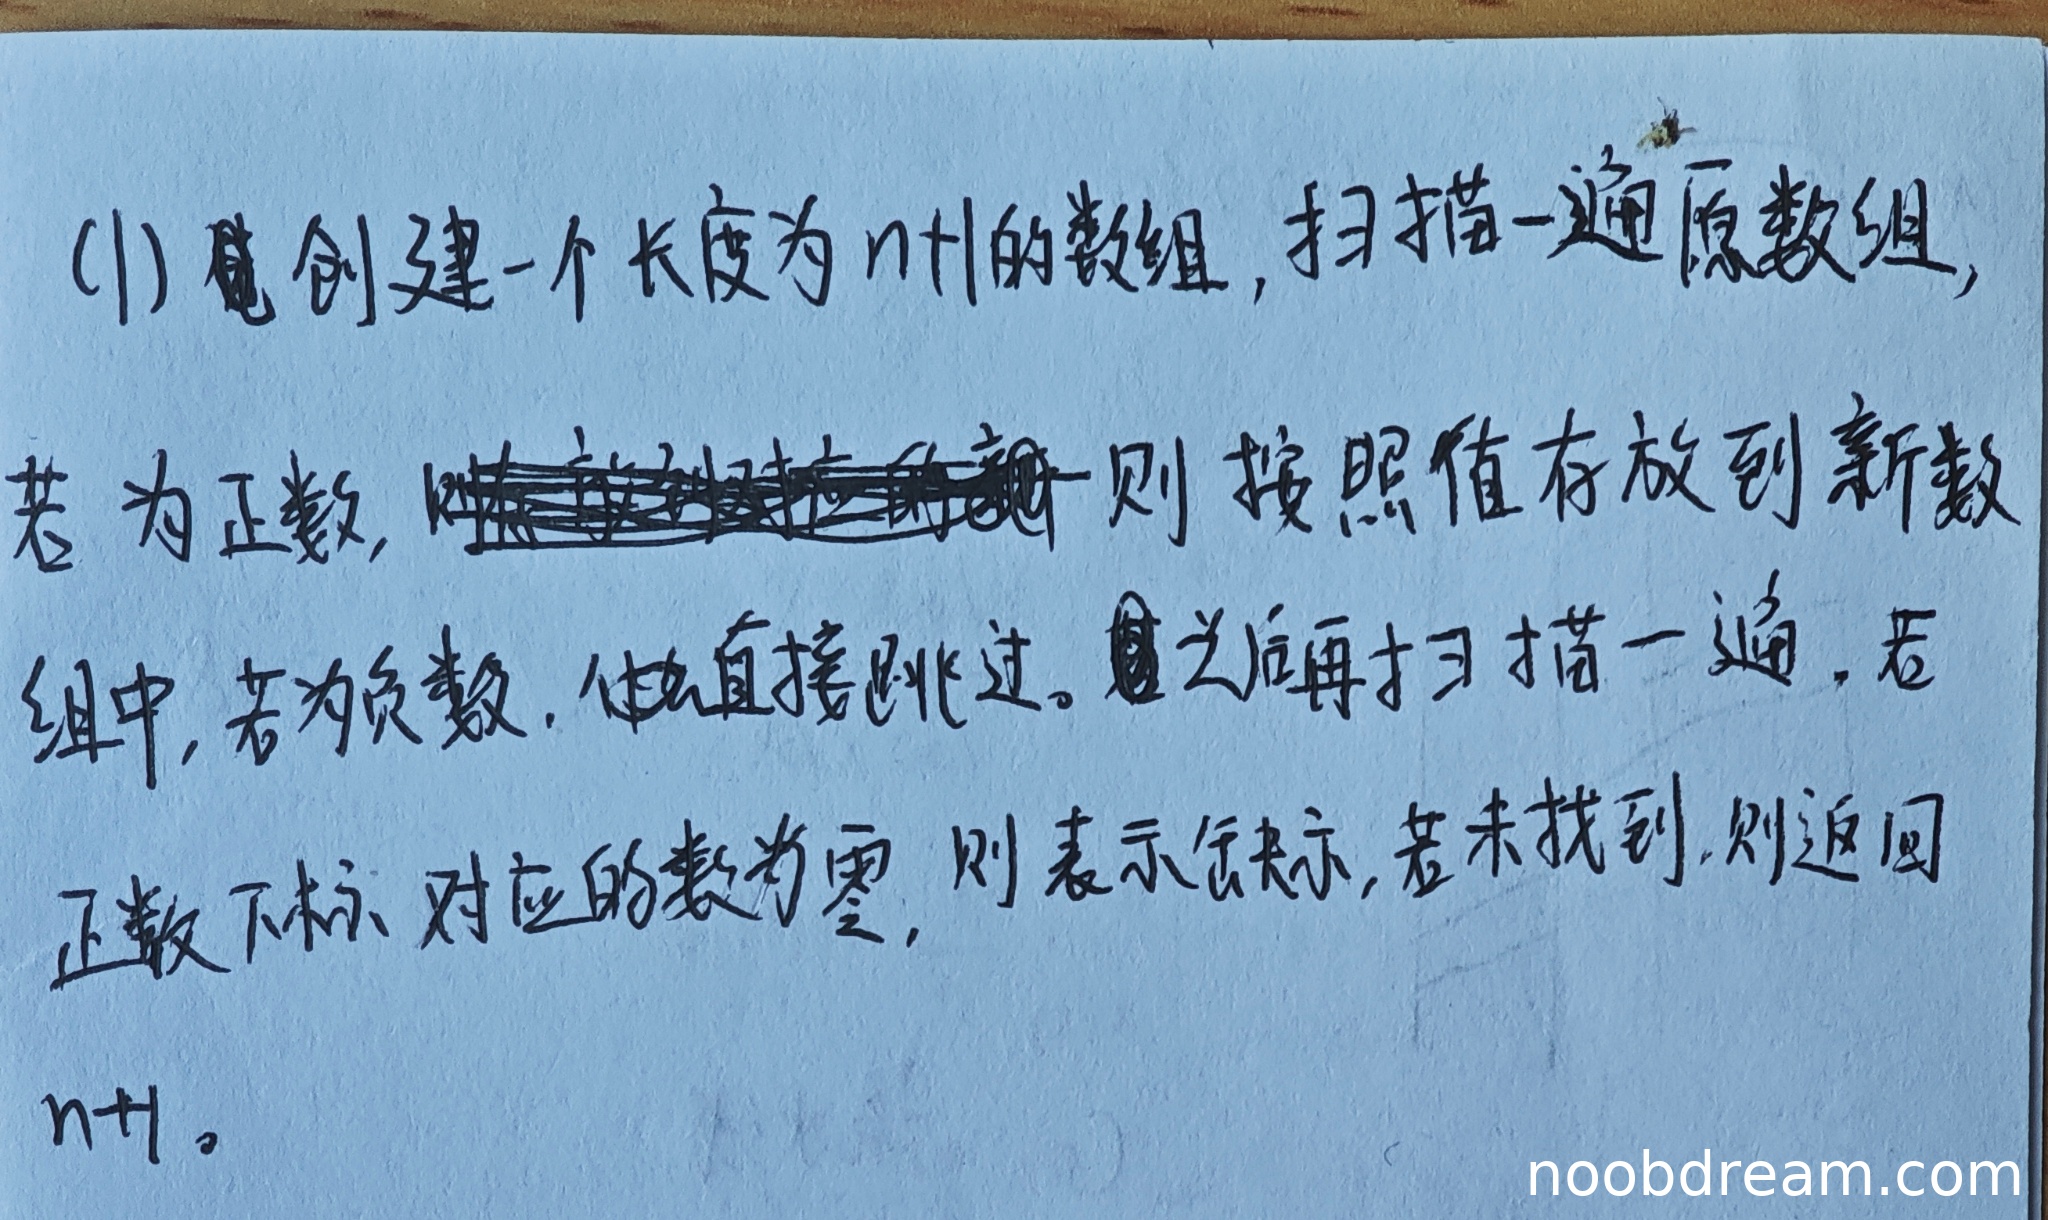 (1) 创建一个长度为n+1的数组,扫描一遍原数组,
若为正数, 则按照值存放到新数
组中,若为负数,也直接跳过。之后再扫描一遍,若
正数下标对应的数为零,则表示缺示,若未找到,则返回
n+1。
noobdream.com